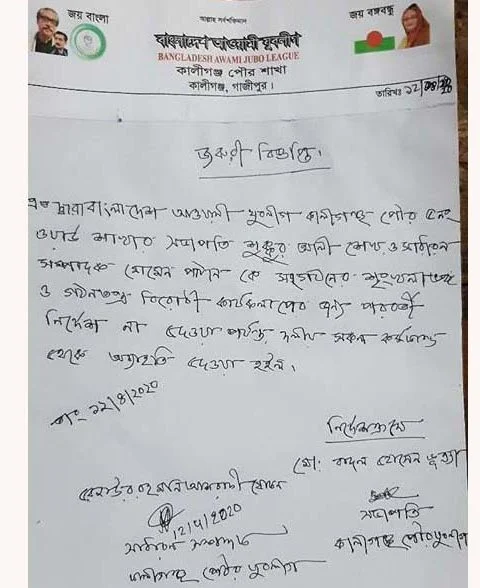 জয় বাংলা
আল্লাহ সর্বশক্তিমান
জয় বঙ্গবন্ধু
বাংলাদেশ আওয়ামী যুবলীগ
BANGLADESH AWAMI JUBO LEAGUE
কালীগঞ্জ পৌর শাখা
কালীগঞ্জ, গাজীপুর।
তারিখঃ ১২/০৪/২০
জরুরী বিজ্ঞপ্তি।
এত দ্বারা বাংলাদেশ আওয়ামী যুবলীগ কালীগঞ্জ পৌর ৫নং
ওয়ার্ড শাখার সভাপতি শুক্কুর আলী শেখ ও সাধারন
সম্পাদক হোসেন পাঠান কে সংগঠনের শৃংখলা ভঙ্গ
ও গঠনতন্ত্র বিরোধী কার্যকলাপের জন্য পরবর্তী
নির্দেশ না দেওয়া পর্যন্ত দলীয় সকল কর্মকান্ড
থেকে অব্যাহতি দেওয়া হইল।
তাং ১২/৪/২০২০
নির্দেশক্রমে
মো: বাদল হোসেন ভূঁইয়া
রেজাউর রহমান আশরাফী খোকন
সভাপতি
12/4/2020
কালীগঞ্জ পৌর যুবলীগ
সাধারন সম্পাদক
কালীগঞ্জ পৌর যুবলীগ